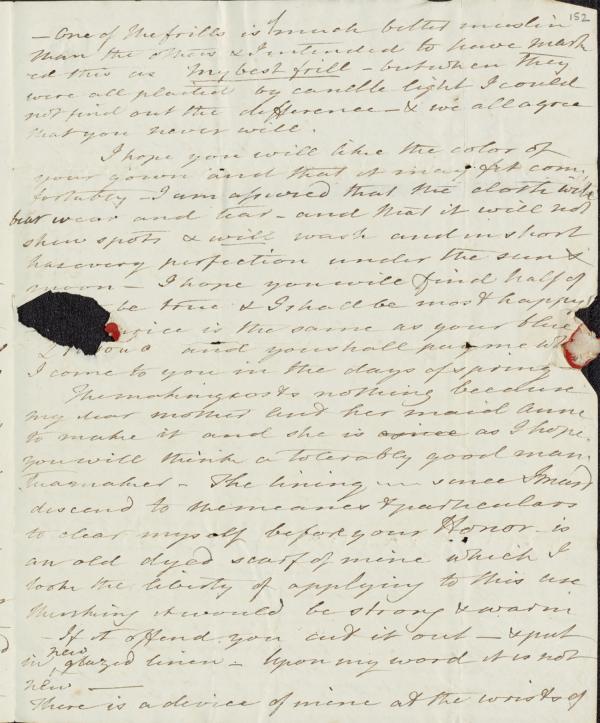 152
– One of the frills is of much better muslin
than the others & I intended to have mark
ed this as My best frill – but when they
were all plaited by candle light I could
not find out the difference – & we all agree
that you never will.
I hope you will like the color of
your gown and that it may fit com
fortably – I am assured that the cloth will
bear wear and tear – and that it will not
shew spots & will wash and in short
has every perfection under the sun &
moon – I hope you will find half of
be true & I shall be most happy
price is the same as your blue
and you shall pay me when
I come to you in the days of spring
The making costs nothing because
my dear mother and her maid Anne
to make it and she is as I hope
you will think a tolerably good man
tuamaker – The lining – since I must
descend to the means & particulars
to clear myself before your Honor – is
an old dyed scarf of mine which I
took the liberty of applying to this use
thinking it would be strong & warm
– If it offend you cut it out – & put
in new glazed linen – Upon my word it is not
new –
There is a device of mine at the wrists of